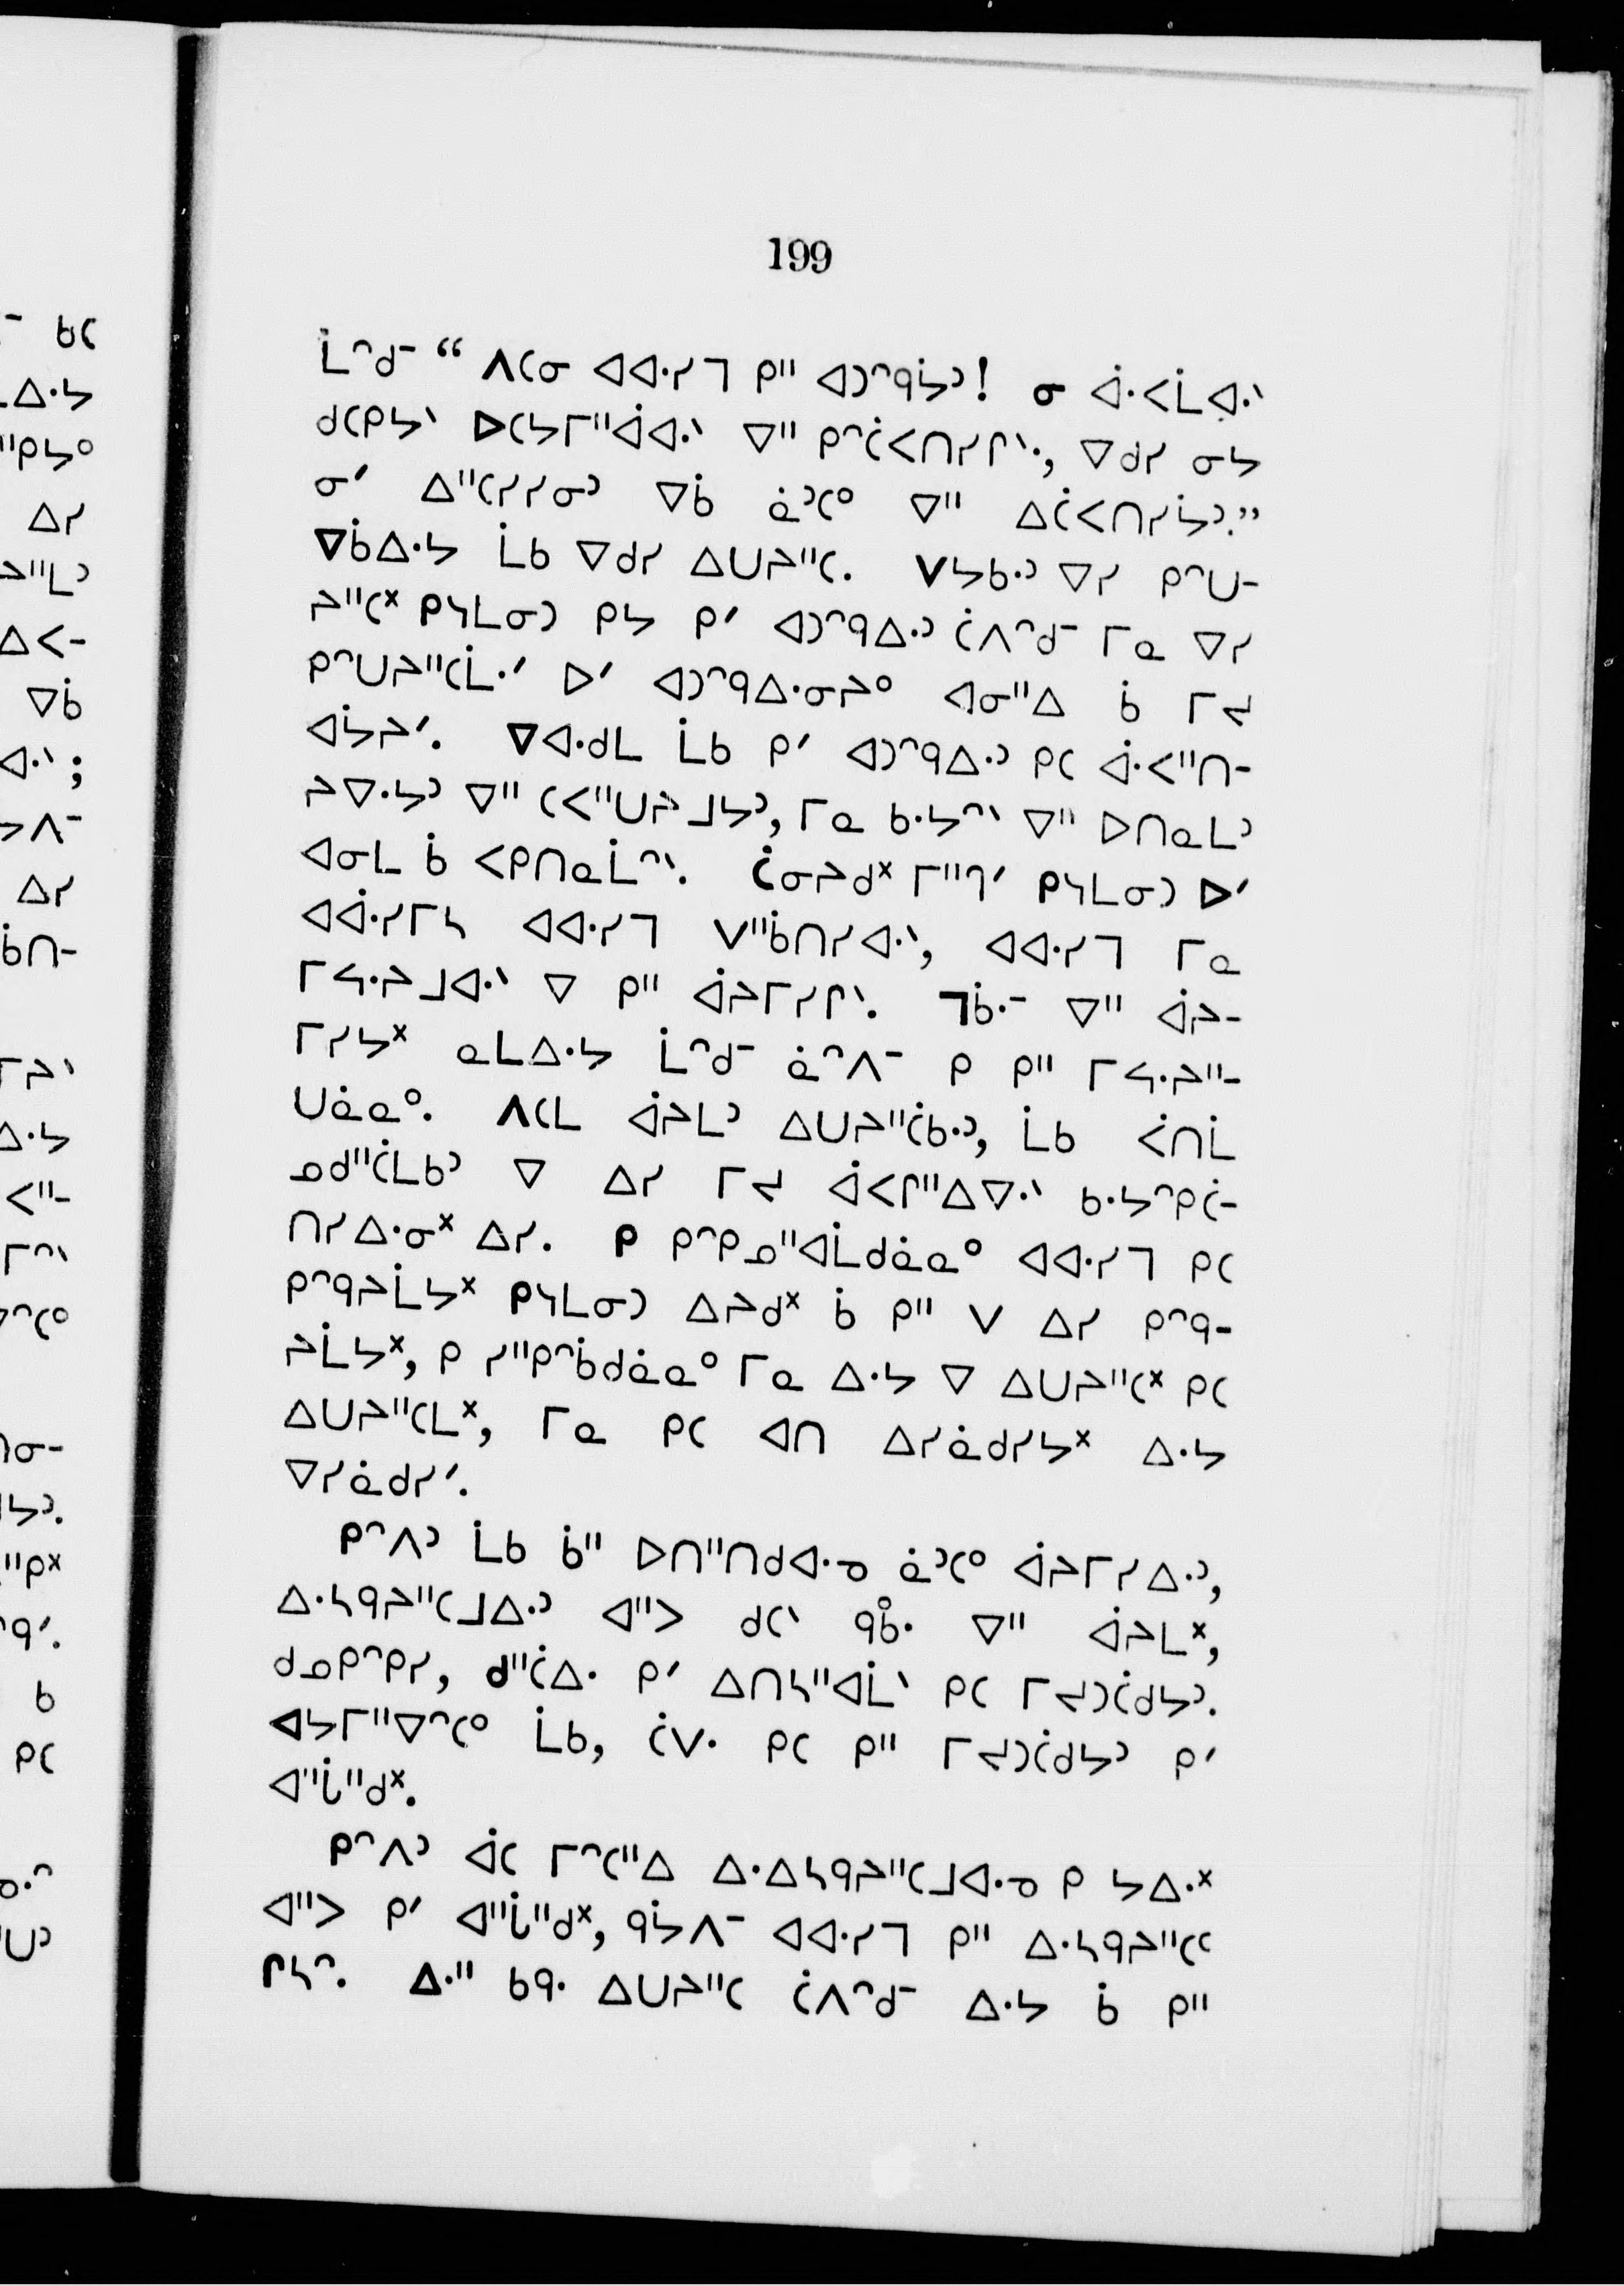 199
ᒫᐢᑯᐨ “ ᐱᑕᓂ ᐊᐊᐧᓯᒣ ᑭᐦ ᐊᑐᐢᑫᔮᐣ! ᓂ ᐋᐧᐸᒫᐊᐧᐠ
ᑯᑕᑭᔭᐠ ᐅᑕᔭᒥᐦᐋᐊᐧᐠ ᐁᐦ ᑭᐢᑖᐸᑎᓯᒋᐠ, ᐁᑯᓯ ᓂᔭ
ᓂᐟ ᐃᐦᑕᓯᓯᓂᐣ ᐁᑳ ᓈᐣᑕᐤ ᐁᐦ ᐃᑖᐸᑎᓯᔮᐣ.”
ᐁᑳᐃᐧᔭ ᒫᑲ ᐁᑯᓯ ᐃᑌᔨᐦᑕ. ᐯᔭᑲᐧᐣ ᐁᓯ ᑭᐢᑌ-
ᔨᐦᑕᕽ ᑭᓴᒪᓂᑐ ᑭᔭ ᑭᐟ ᐊᑐᐢᑫᐃᐧᐣ ᑖᐱᐢᑯᐨ ᒥᓇ ᐁᓯ
ᑭᐢᑌᔨᐦᑕᒫᐧᐟ ᐅᐟ ᐊᑐᐢᑫᐃᐧᓂᔨᐤ ᐊᓂᐦᐃ ᑳ ᒥᔪ
ᐊᔮᔨᐟ. ᐁᐊᐧᑯᒪ ᒫᑲ ᑭᐟ ᐊᑐᐢᑫᐃᐧᐣ ᑭᑕ ᐋᐧᐸᐦᑎ-
ᔨᐁᐧᔭᐣ ᐁᐦ ᑕᐸᐦᑌᔨᒧᔭᐣ, ᒥᓇ ᑲᐧᔭᐢᐠ ᐁᐦ ᐅᑎᓇᒪᐣ
ᐊᓂᒪ ᑳ ᐸᑭᑎᓇᒫᐢᐠ. ᑖᓂᔨᑯᕽ ᒥᐦᒉᐟ ᑭᓴᒪᓂᑐ ᐅᐟ
ᐊᐋᐧᓯᒥᓴ ᐊᐊᐧᓯᒣ ᐯᐦᑳᑎᓯᐊᐧᐠ, ᐊᐊᐧᓯᒣ ᒥᓇ
ᒥᓵᐧᔨᒧᐊᐧᐠ ᐁ ᑭᐦ ᐋᔨᒥᓯᒋᐠ. ᒣᑳᐧᐨ ᐁᐦ ᐋᔨ-
ᒥᓯᔭᕽ ᓇᒪᐃᐧᔭ ᒫᐢᑯᐨ ᓈᐢᐱᐨ ᑭ ᑭᐦ ᒥᓵᐧᔨᐦ-
ᑌᓈᓇᐤ. ᐱᑕᒪ ᐋᔨᒪᐣ ᐃᑌᔨᐦᑖᑲᐧᐣ, ᒫᑲ ᐹᑎᒫ
ᓄᑯᐦᑖᒪᑲᐣ ᐁ ᐃᓯ ᒥᔪ ᐋᐸᒋᐦᐃᐁᐧᐠ ᑲᐧᔭᐢᑭᑖ-
ᑎᓯᐃᐧᓂᕽ ᐃᓯ. ᑭ ᑭᐢᑭᓄᐦᐊᒫᑯᓈᓇᐤ ᐊᐊᐧᓯᒣ ᑭᑕ
ᑭᐢᑫᔨᒫᔭᕽ ᑭᓴᒪᓂᑐ ᐃᔨᑯᕽ ᑳ ᑭᐦ ᐯ ᐃᓯ ᑭᐢᑫ-
ᔨᒫᔭᕽ, ᑭ ᓯᐦᑭᐢᑳᑯᓈᓇᐤ ᒥᓇ ᐃᐧᔭ ᐁ ᐃᑌᔨᐦᑕᕽ ᑭᑕ
ᐃᑌᔨᐦᑕᒪᕽ, ᒥᓇ ᑭᑕ ᐊᑎ ᐃᓯᓈᑯᓯᔭᕽ ᐃᐧᔭ
ᐁᓯᓈᑯᓯᐟ.
ᑭᐢᐱᐣ ᒫᑲ ᑳᐦ ᐅᑎᐦᑎᑯᐊᐧᓄ ᓈᐣᑕᐤ ᐋᔨᒥᓯᐃᐧᐣ,
ᐃᐧᓴᑫᔨᐦᑕᒧᐃᐧᐣ ᐊᐦᐳ ᑯᑕᐠ ᑫᑿᐧ ᐁᐦ ᐋᔨᒪᕽ,
ᑯᓄᑭᐢᑭᓯ, ᑯᐦᑖᐃᐧ ᑭᐟ ᐃᑎᓴᐦᐊᒫᐠ ᑭᑕ ᒥᔪᑐᑖᑯᔭᐣ.
ᐊᔭᒥᐦᐁᐢᑕᐤ ᒫᑲ, ᑖᐯᐧ ᑭᑕ ᑭᐦ ᒥᔪᑐᑖᑯᔭᐣ ᑭᐟ
ᐊᐦᒑᐦᑯᕽ.
ᑭᐢᐱᐣ ᐋᑕ ᒥᐢᑕᐦᐃ ᐃᐧᐃᓴᑫᔨᐦᑕᒧᐊᐧᓄ ᑭ ᔭᐃᐧᕽ
ᐊᐦᐳ ᑭᐟ ᐊᐦᒑᐦᑯᕽ, ᑫᔮᐱᐨ ᐊᐊᐧᓯᒣ ᑭᐦ ᐃᐧᓴᑫᔨᐦᑕᑦ
ᒋᓴᐢ. ᐃᐧᐦ ᑲᑫᐧ ᐃᑌᔨᐦᑕ ᑖᐱᐢᑯᐨ ᐃᐧᔭ ᑳ ᑭᐦ